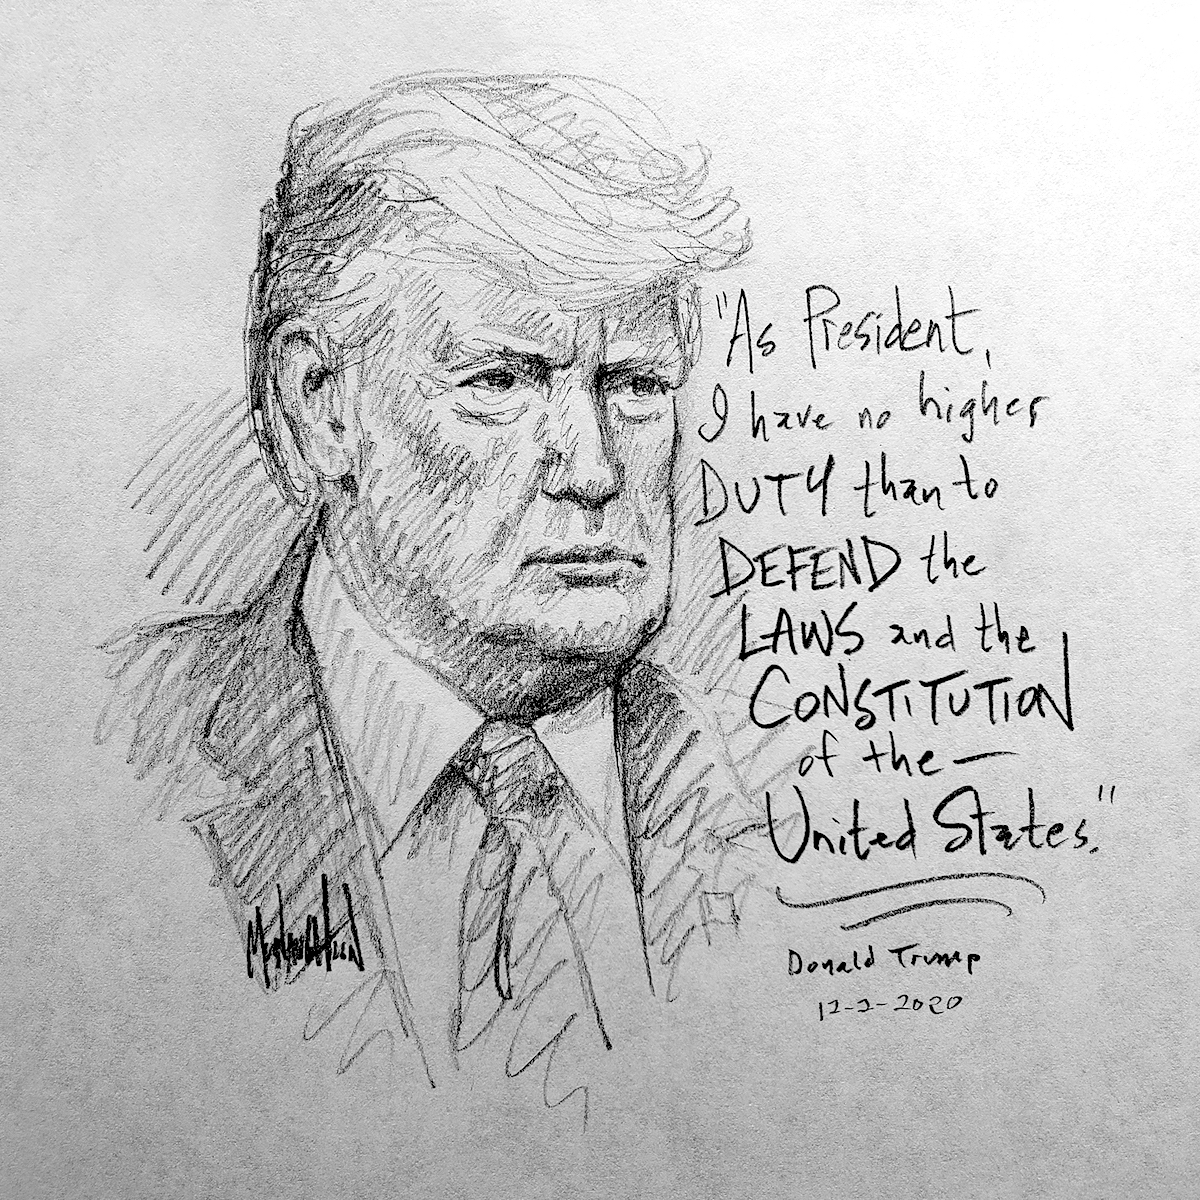 "As President,
I have no higher
DUTY than to
DEFEND the
LAWS and the
CONSTITUTION
of the—
United States."
Donald Trump
12-2-2020